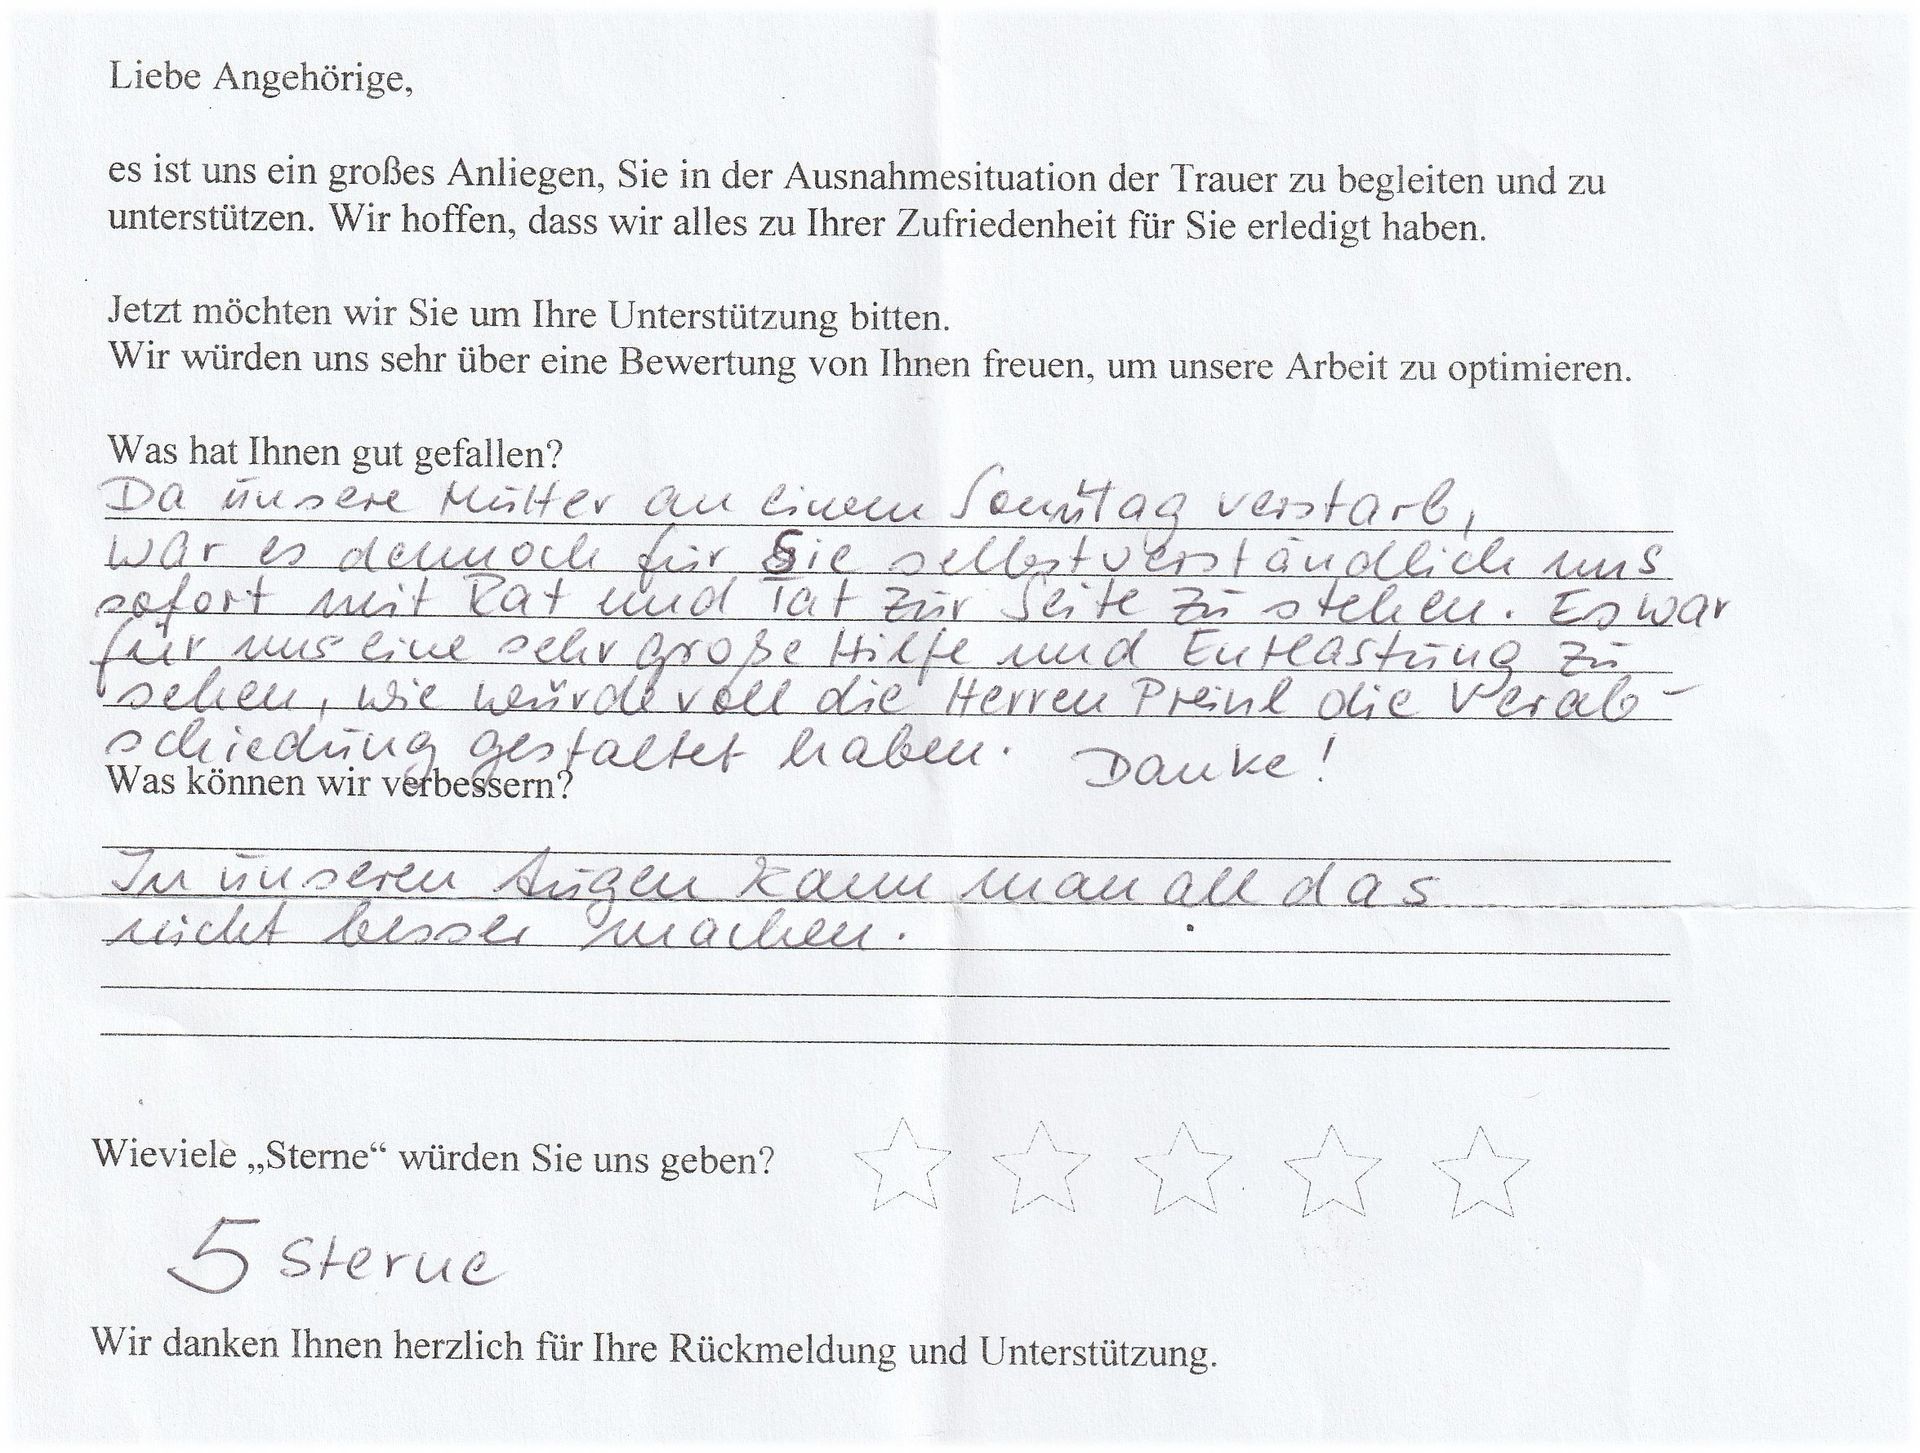 Liebe Angehörige,
es ist uns ein großes Anliegen, Sie in der Ausnahmesituation der Trauer zu begleiten und zu
unterstützen. Wir hoffen, dass wir alles zu Ihrer Zufriedenheit für Sie erledigt haben.
Jetzt möchten wir Sie um Ihre Unterstützung bitten.
Wir würden uns sehr über eine Bewertung von Ihnen freuen, um unsere Arbeit zu optimieren.
Was hat Ihnen gut gefallen?
Da unsere Mutter an einem Sonntag verstarb,
war es dennoch für Sie selbstverständlich uns
sofort mit Rat und Tat zur Seite zu stehen. Es war
für uns eine sehr große Hilfe und Entlastung zu
sehen, wie würdevoll die Herren Preinl die Verab-
schiedung gestaltet haben. Danke!
Was können wir verbessern?
In unseren Augen kann man all das
nicht besser machen.
Wieviele „Sterne“ würden Sie uns geben?
5 Sterne
Wir danken Ihnen herzlich für Ihre Rückmeldung und Unterstützung.